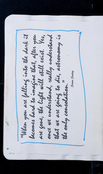 "When you are falling into the dark it
becomes hard to imagine that after you
are gone, the light will still exist. Yes,
once we understand, really understand
that we are going to die, astronomy is
the only consolation."